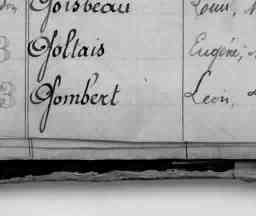 Goisbeau Louis,
Gollais Eugène,
Gombert Léon,